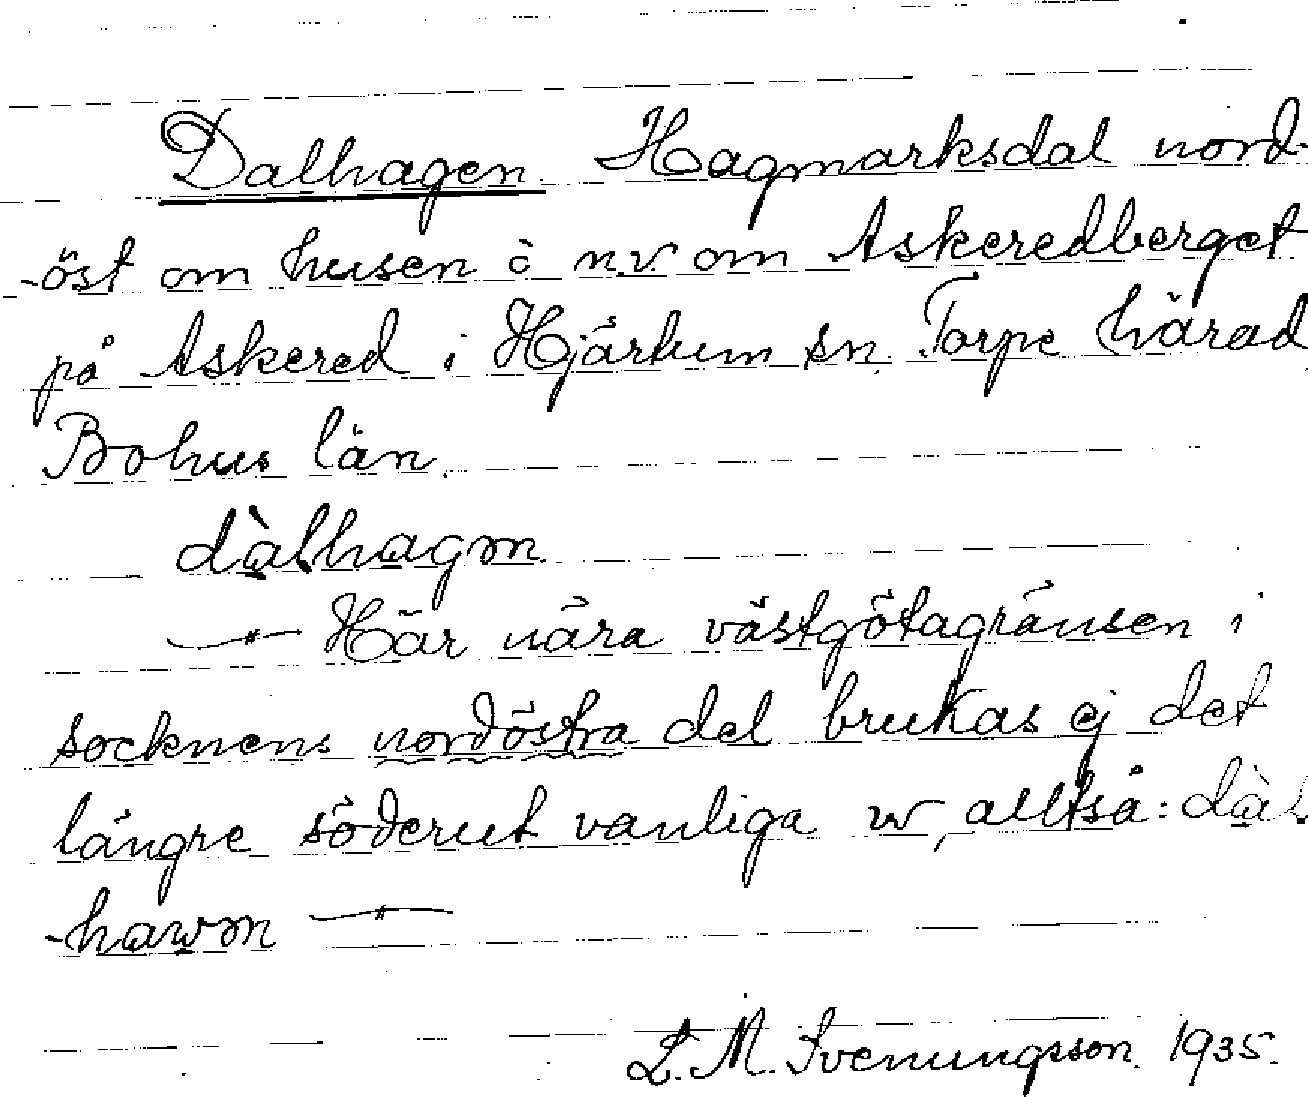 Dalhagen Hagmarksdal nord-
-öst om husen ò nv om Askeredberget
på Askered i Hjärtum sn. Torpe härad
Bohus län
dàlhagm
—"— Här nära västgötagränsen i
socknens nordöstra del brukas ej det
längre söderut vanliga w, alltså: dàl
-hawm —"—
L. M. Svenungsson. 1935.